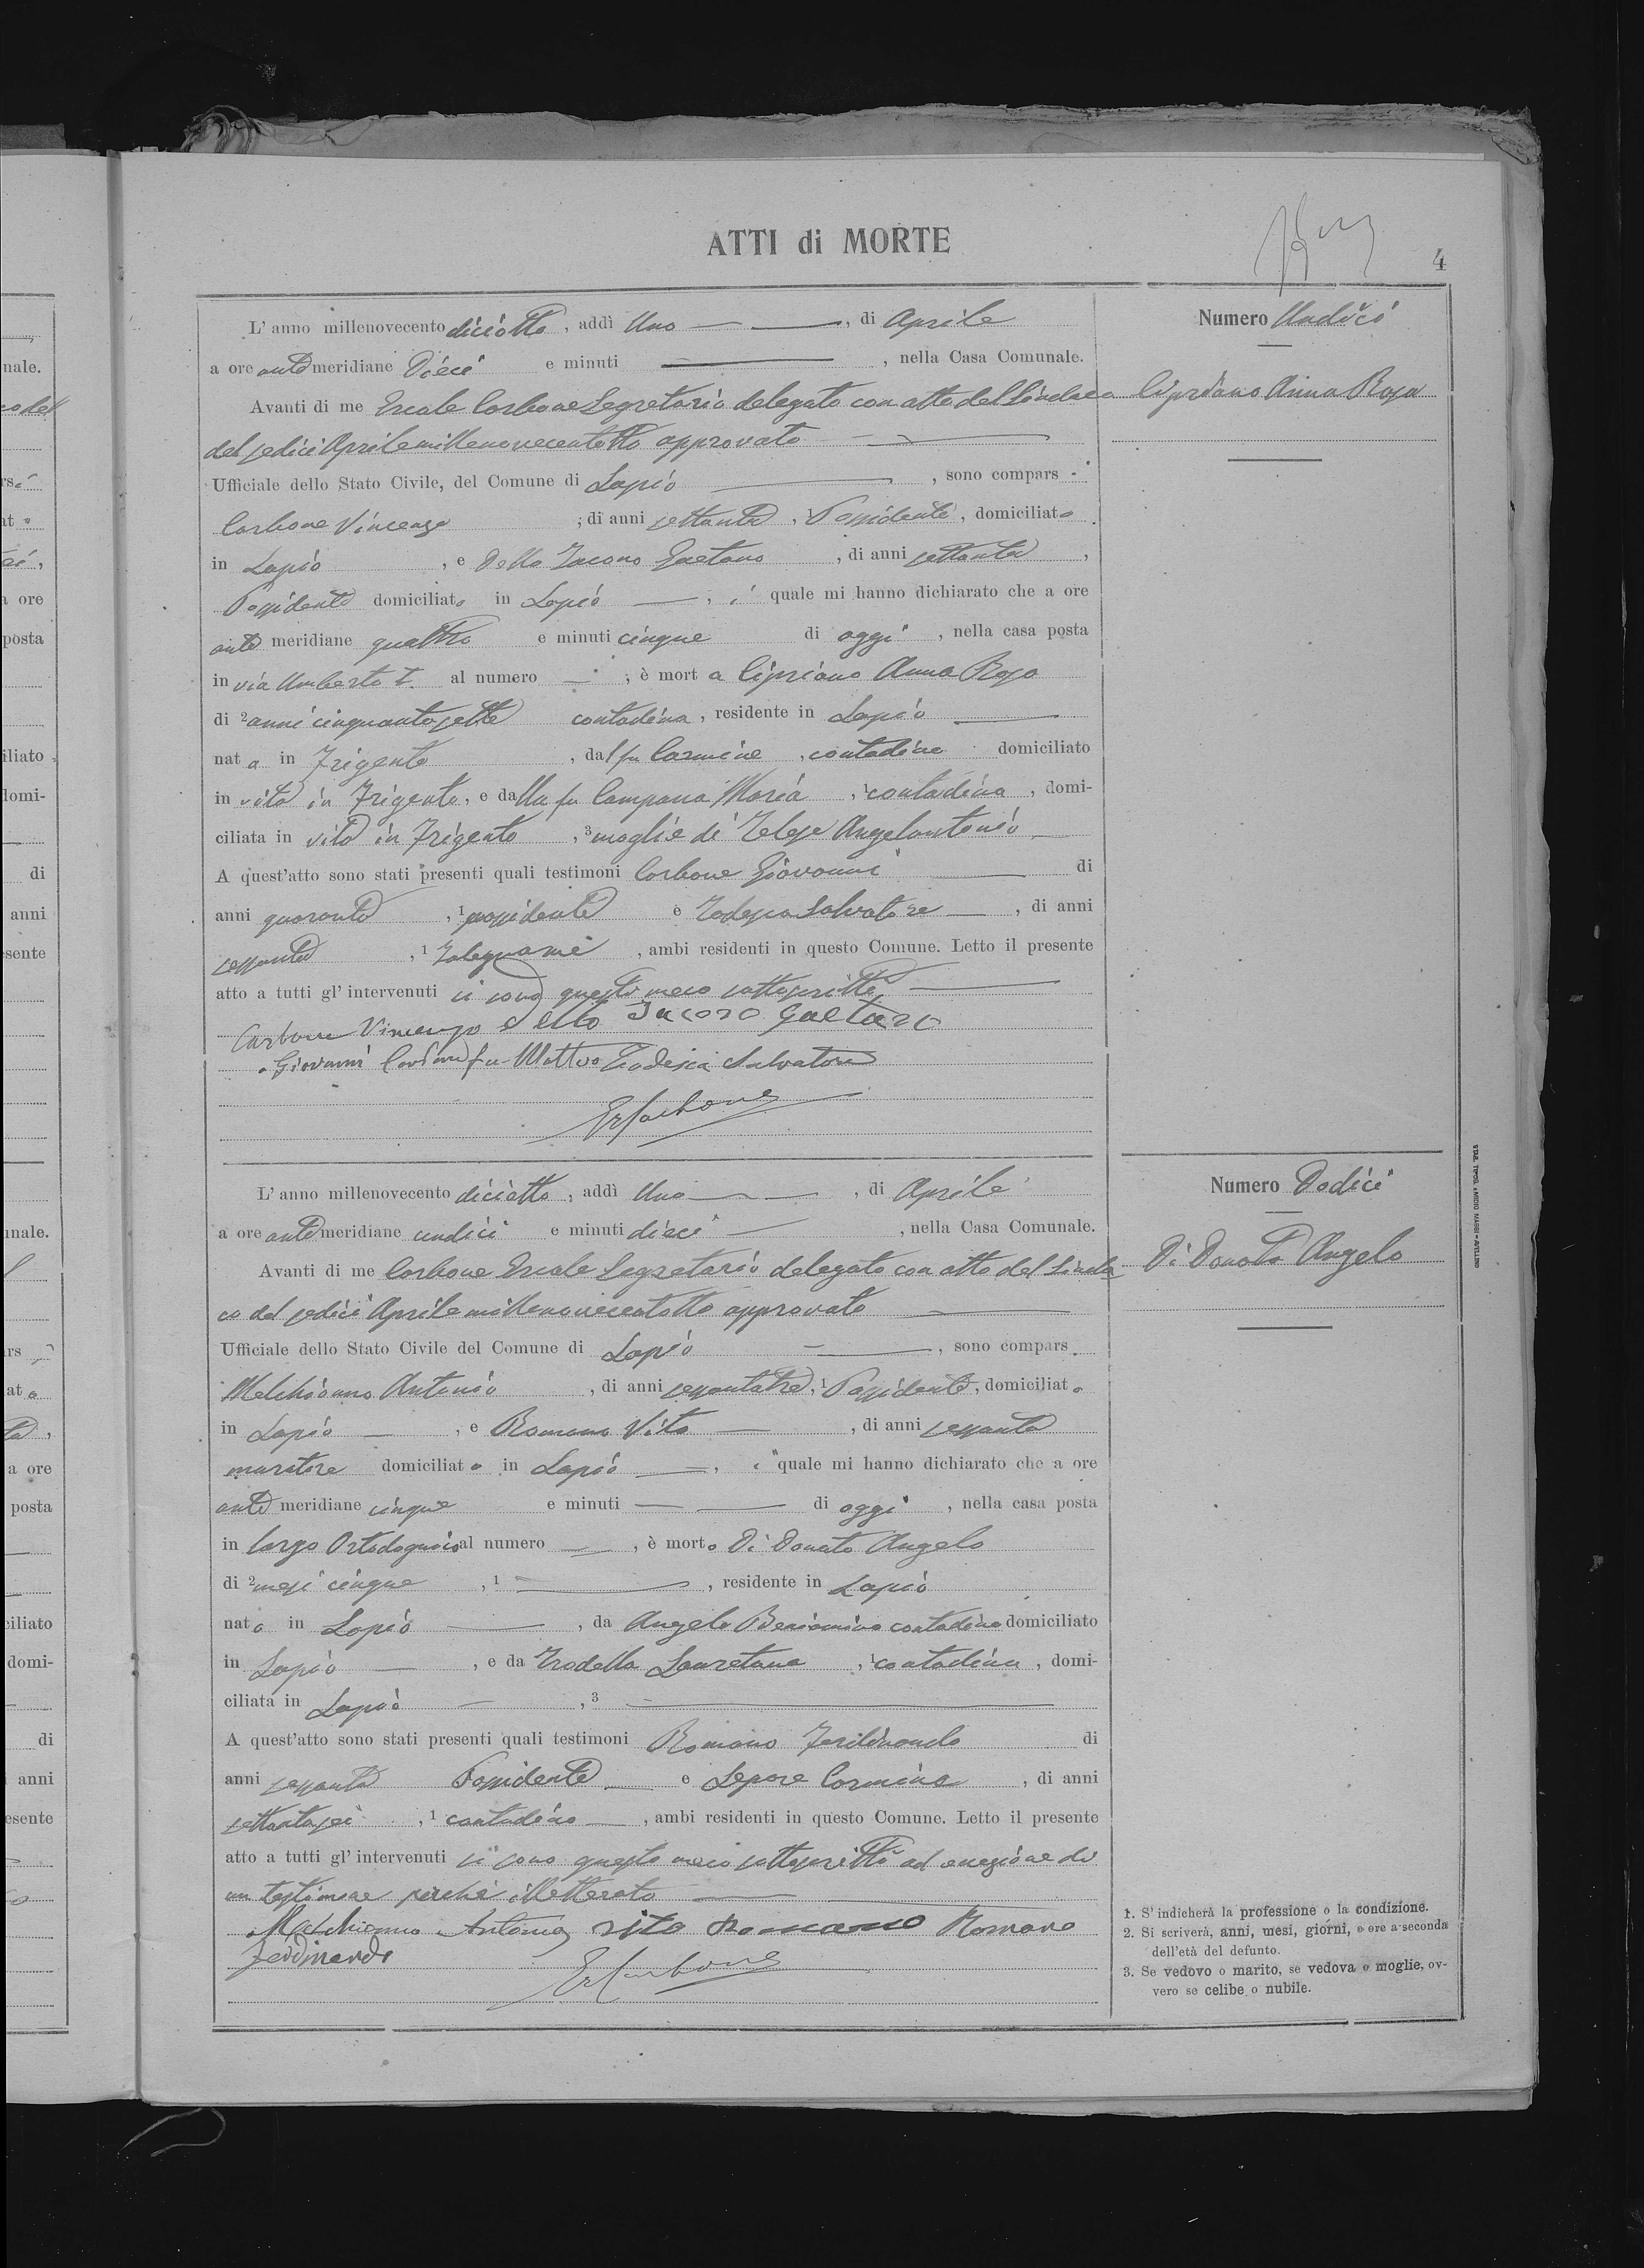 ATTI di MORTE
4
Numero Undici
Cipriano Anna Rosa
L'anno millenovecento diciotto, addì Uno, di Aprile
a ore antemeridiane Dieci e minuti, nella Casa Comunale.
Avanti di me Ercole Carbone Segretario delegato con atto del Sindaco
del sedici Aprile millenovecentotto approvato
Ufficiale dello Stato Civile, del Comune di Lapio, sono compars i
Carbone Vincenzo; di anni settanta, 1 Possidente, domiciliato
in Lapio, e Dello Iacono Gaetano, di anni settanta,
Possidente domiciliato in Lapio, i quale mi hanno dichiarato che a ore
ante meridiane quattro e minuti cinque di oggi, nella casa posta
in via Umberto I. al numero; è mort a Cipriano Anna Rosa
di 2 anni cinquantasette contadina, residente in Lapio
nat a in Frigento, dal fu Carmine, contadino domiciliato
in vita in Frigento, e dalla fu Campana Maria, 1 contadina, domi-
ciliata in vita in Frigento, 3 moglie di Telese Angelantonio
A quest'atto sono stati presenti quali testimoni Carbone Giovanni di
anni quaranta, 1 possidente e Todesca Salvatore, di anni
sessanta, 1 Falegname, ambi residenti in questo Comune. Letto il presente
atto a tutti gl'intervenuti si sono questi meco sottoscritti
Carbone Vincenzo Dello Iacono Gaetano
Giovanni Carbone fu Matteo Todesca Salvatore
Er Carbone
Numero Dodici
Di Donato Angelo
L'anno millenovecento diciotto, addì Uno, di Aprile
a ore antemeridiane undici e minuti dieci, nella Casa Comunale.
Avanti di me Carbone Ercole Segretario delegato con atto del Sinda
co del sedici Aprile millenovecentotto approvato
Ufficiale dello Stato Civile del Comune di Lapio, sono compars
Melchionno Antonio, di anni sessantatre, 1 Possidente, domiciliato
in Lapio, e Romano Vito, di anni sessanta
muratore domiciliato in Lapio, i quale mi hanno dichiarato che a ore
ante meridiane cinque e minuti di oggi, nella casa posta
in largo al numero, è morto Di Donato Angelo
di 2 mesi cinque, 1, residente in Lapio
nato in Lapio, da Angelo Beniamino contadino domiciliato
in Lapio, e da Lauretana, 1 contadina, domi-
ciliata in Lapio, 3
A quest'atto sono stati presenti quali testimoni Romano Ferdinando di
anni sessanta Possidente e Lepore Carmine, di anni
settantasei, 1 contadino, ambi residenti in questo Comune. Letto il presente
atto a tutti gl'intervenuti si sono questi meco sottoscritti ad eccezione di
un testimone perché illetterato
Melchionno Antonio Vito Romano Romano
Ferdinando
Er Carbone
1. S'indicherà la professione o la condizione.
2. Si scriverà, anni, mesi, giorni, o ore a seconda
dell'età del defunto.
3. Se vedovo o marito, se vedova o moglie, ov-
vero se celibe o nubile.